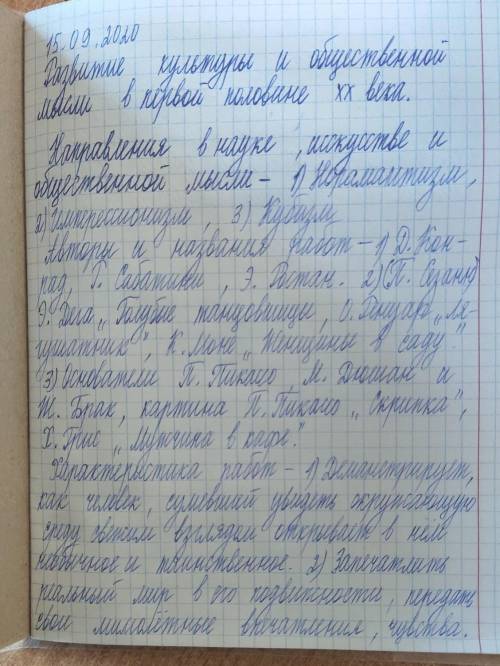 15.09.2020
Развитие культуры и общественной
мысли в первой половине XX века.
Направления в науке, искусстве и
общественной мысли - 1) Норамантизм,
2) Импрессионизм, 3) Кубизм
Авторы и названия работ - 1) Д. Кон-
рад, Г. Сабатини, Э. Ростан. 2) (П. Сезанн)
Э. Дега „Голубые танцовщицы, О. Ренуар „Ля-
гушатник", К. Моне „Женщины в саду".
3) Основатели П. Пикасо, М. Дюшан и
Ж. Брак, картина П. Пикасо „Скрипка",
Х. Грис „Мужчина в кафе".
Характеристика работ - 1) Демонстрирует,
как человек, сумевший увидеть окружающую
среду свежим взглядом открывает в ней
необычное и таинственное. 2) Запечатлить
реальный мир в его подвижности, передать
свои мимолётные впечатления, чувства.